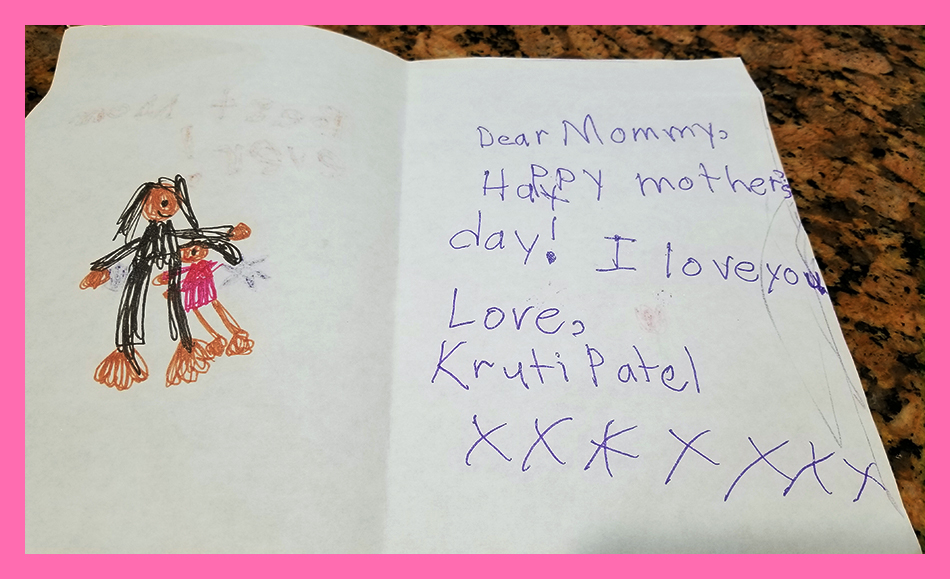 Best Mom
ever!
Dear Mommy,
Happy mother's
day! I love you
Love,
Kruti Patel
X X X X X X X